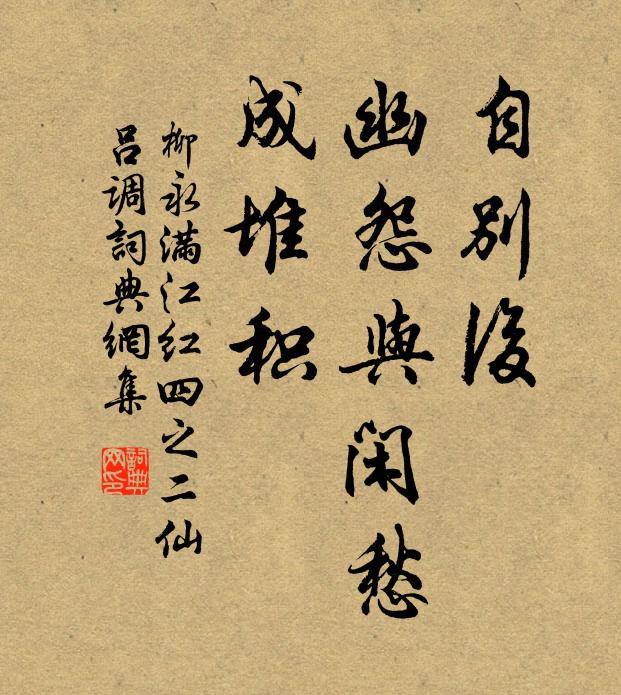 自别後
幽怨與闲愁
成堆积
柳永满江红四之二仙
吕调詞典網集
詞典
网印